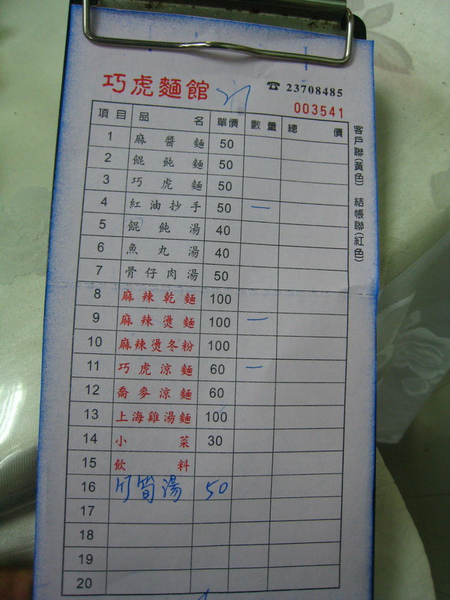 巧虎麵館 ☎ 23708485
003541
項目 品名 單價 數量 總價
1 麻醬麵 50
2 餛飩麵 50
3 巧虎麵 50
4 紅油抄手 50 一
5 餛飩湯 40
6 魚丸湯 40
7 骨仔肉湯 50
8 麻辣乾麵 100
9 麻辣燙麵 100 一
10 麻辣燙冬粉 100
11 巧虎涼麵 60 一
12 喬麥涼麵 60
13 上海雞湯麵 100
14 小菜 30
15 飲料
16 竹筍湯 50
17
18
19
20
客戶聯(黃色) 結帳聯(紅色)